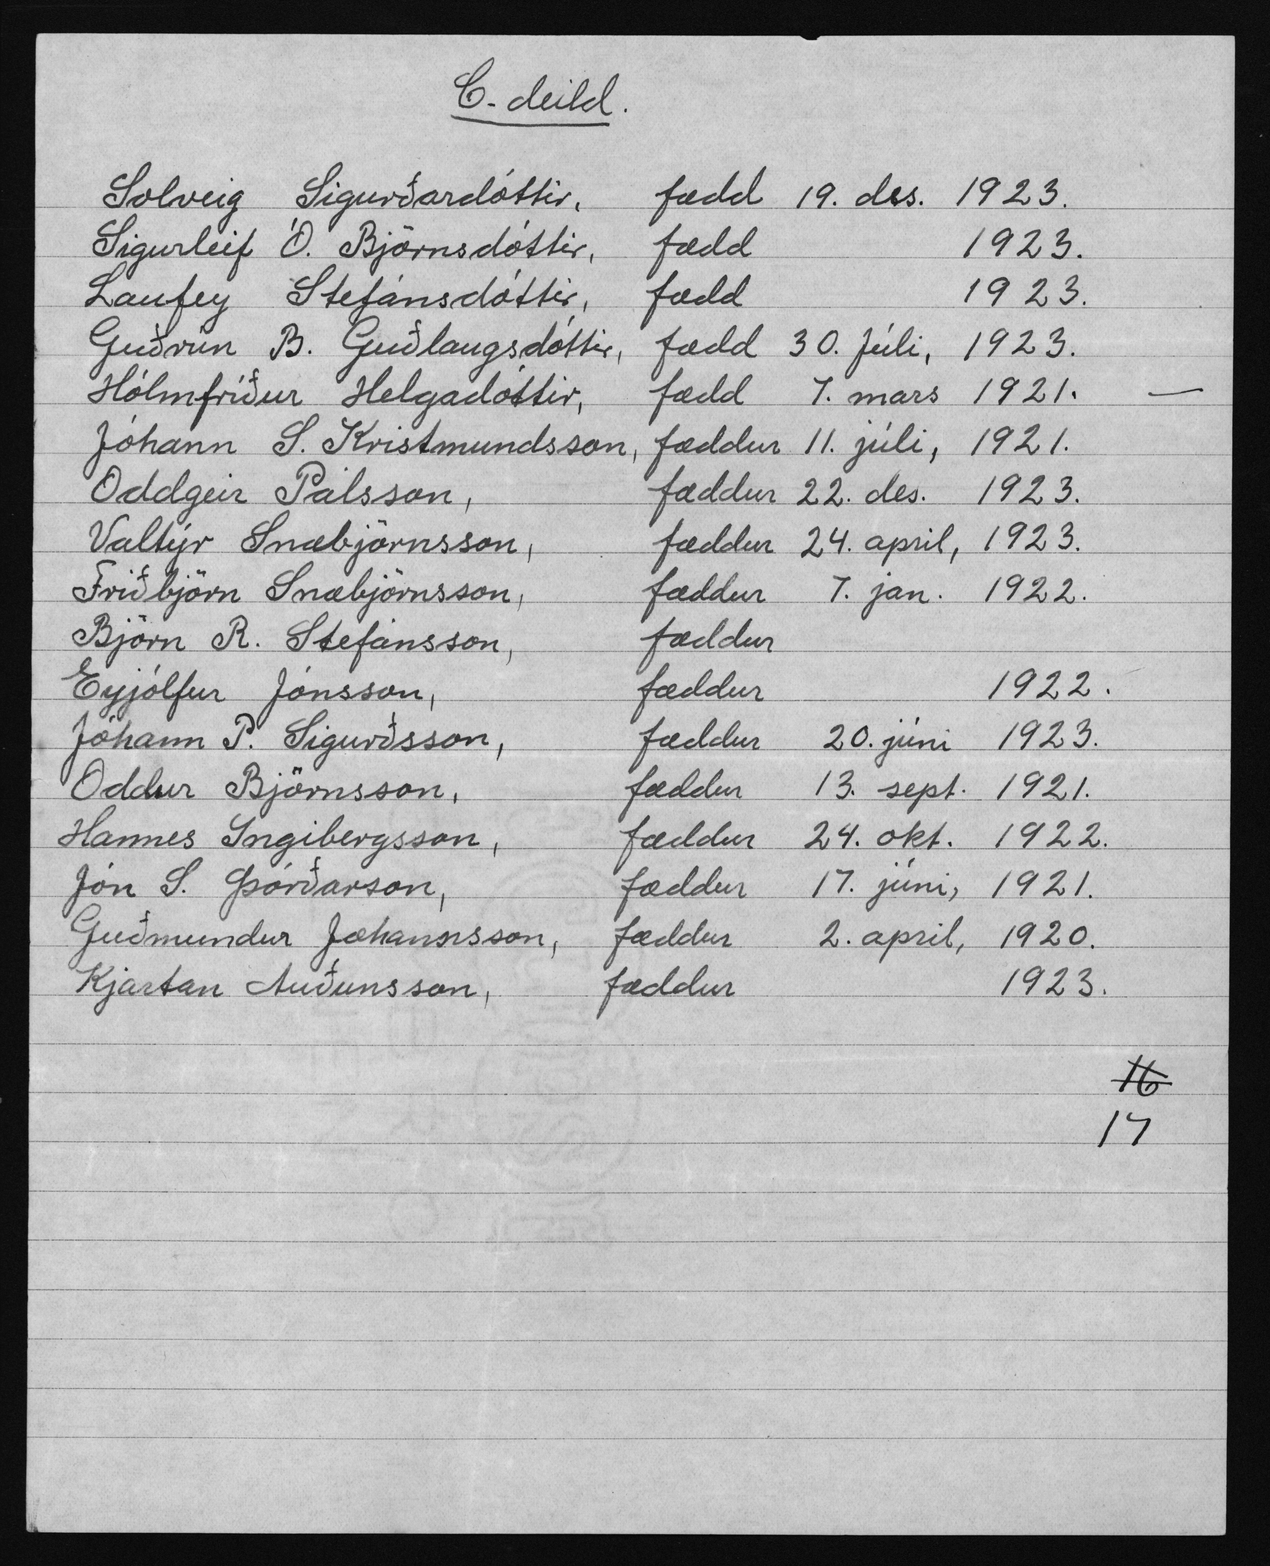 C-deild.
Solveig Sigurðardóttir, fædd 19. des. 1923.
Sigurleif Ó. Björnsdóttir, fædd 1923.
Laufey Stefánsdóttir, fædd 1923.
Guðrún B. Guðlaugsdóttir, fædd 30. Júli, 1923.
Hólmfríður Helgadóttir, fædd 7. mars 1921. —
Jóhann S. Kristmundsson, fæddur 11. júli, 1921.
Oddgeir Pálsson, fæddur 22. des. 1923.
Valtýr Snæbjörnsson, fæddur 24. april, 1923.
Friðbjörn Snæbjörnsson, fæddur 7. jan. 1922.
Björn R. Stefánsson, fæddur
Eyjólfur Jónsson, fæddur 1922.
Jóhann P. Sigurðsson, fæddur 20. júni 1923.
Oddur Björnsson, fæddur 13. sept. 1921.
Hannes Ingibergsson, fæddur 24. okt. 1922.
Jón S. Þórðarson, fæddur 17. júni, 1921.
Guðmundur Jóhannsson, fæddur 2. april, 1920.
Kjartan Auðunsson, fæddur 1923.
16
17